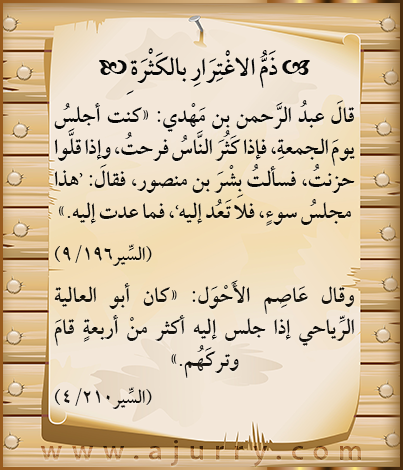 ذَمُّ الاغْتِرَارِ بالكَثْرَةِ
قالَ عبدُ الرَّحمن بن مَهْدي: «كنت أجلسُ
يومَ الجمعةِ، فإذا كَثُرَ النَّاسُ فرحتُ، وإذا قلُّوا
حزنتُ، فسألتُ بِشْرَ بن منصور، فقالَ: ‘هذا
مجلسُ سوءٍ، فلا تَعُد إليه‘، فما عدت إليه.»
(السِّير١٩٦/ ٩)
وقال عَاصِم الأَحْوَل: «كان أبو العالية
الرِّياحي إذا جلس إليه أكثر منْ أربعةٍ قامَ
وتركَهُم.»
(السِّير٢١٠/ ٤)
www.ajurry.com